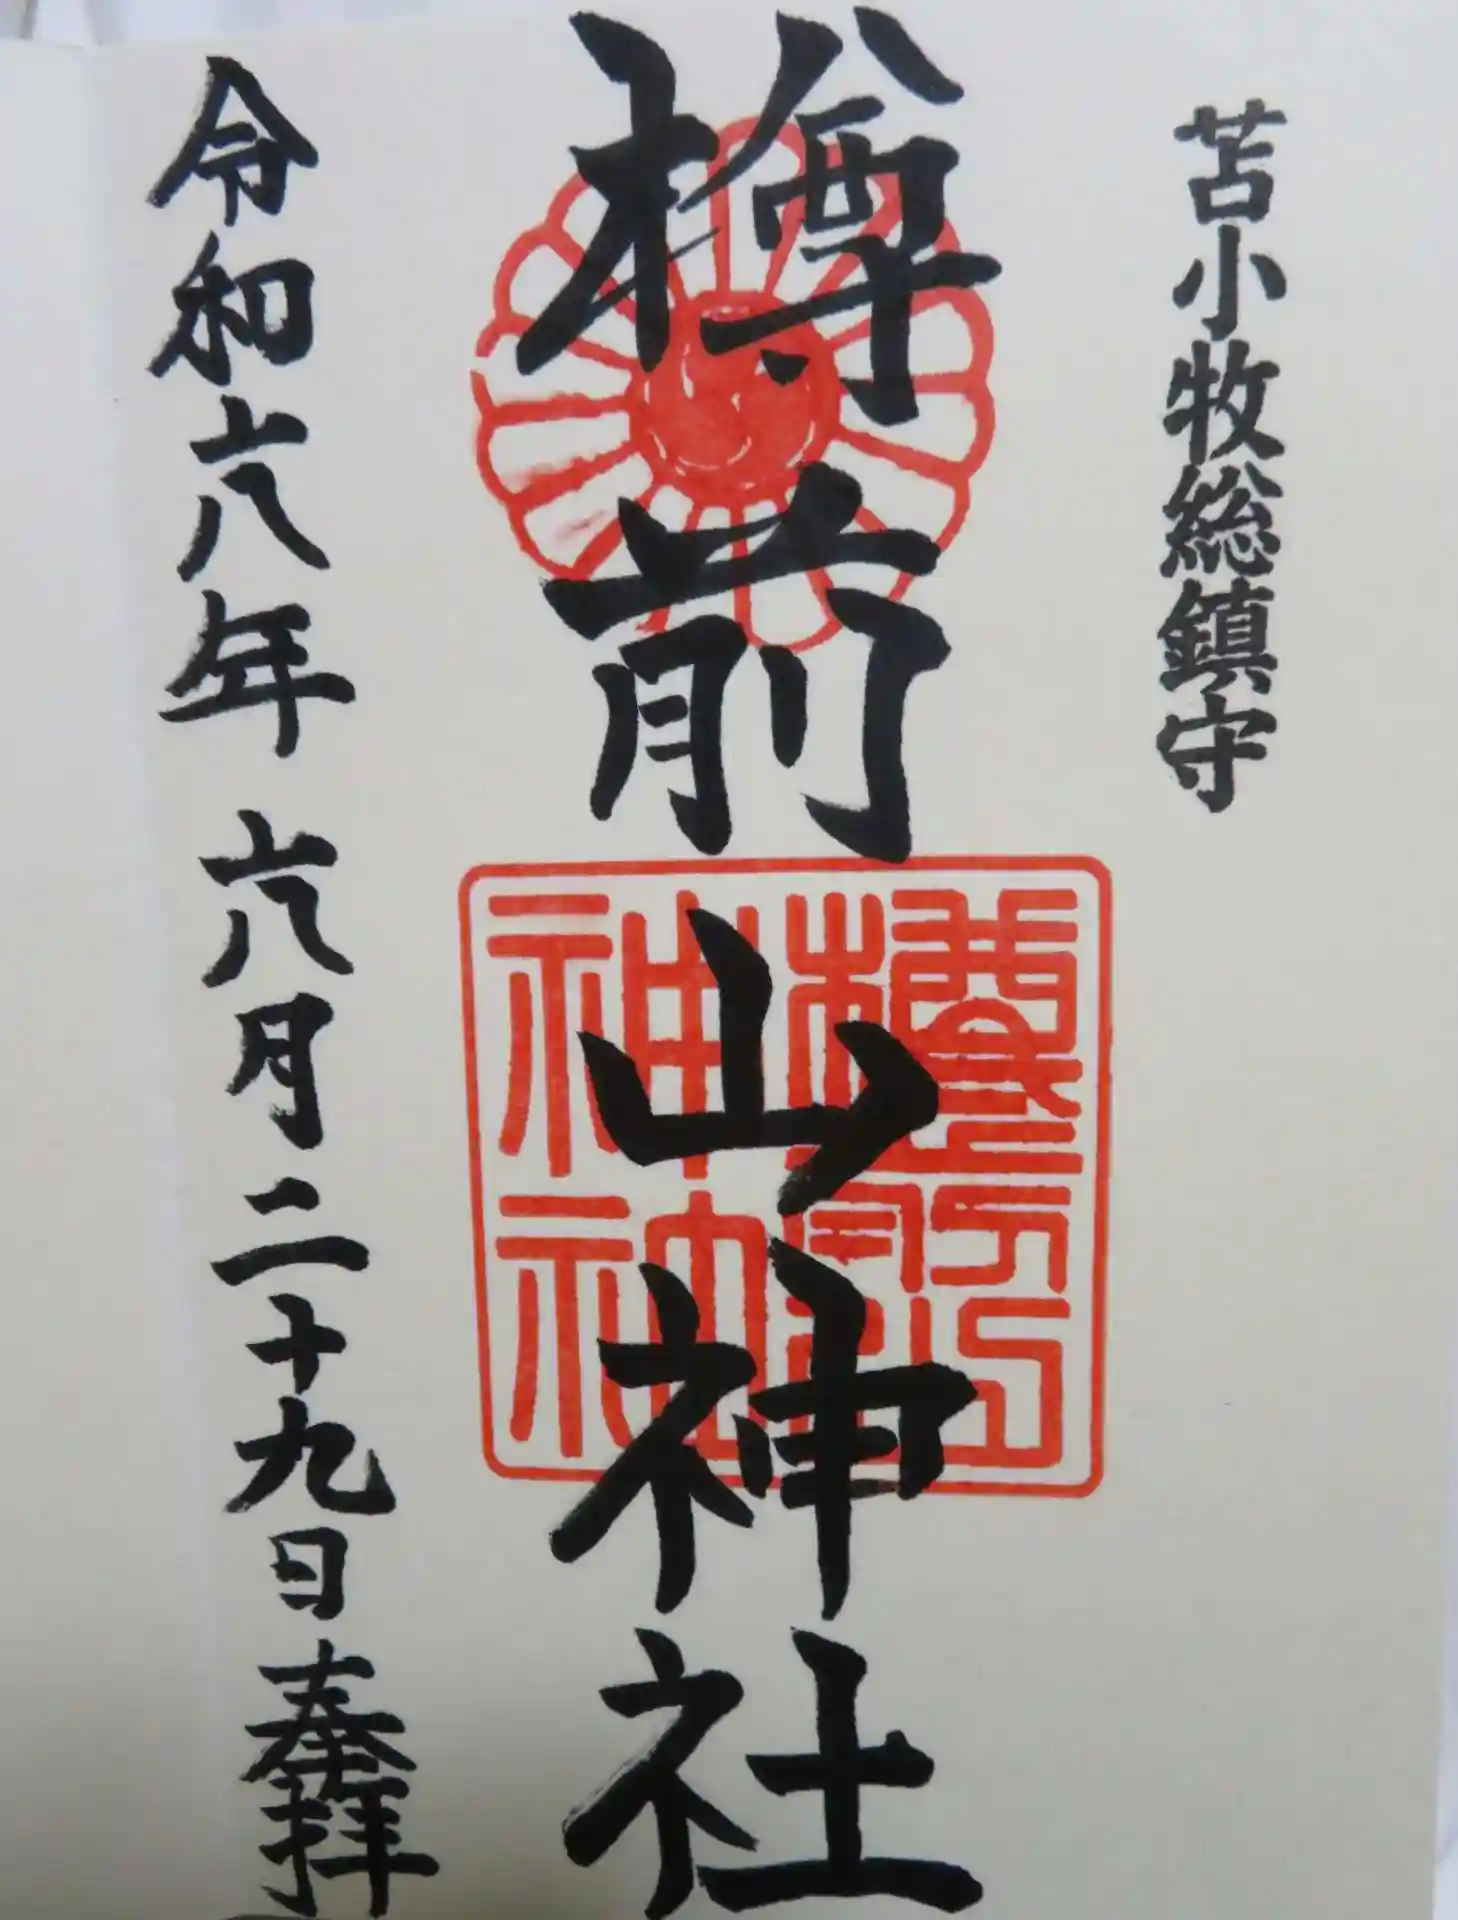 苫小牧総鎮守
樽前山神社
令和六年 六月二十九日 奉拝